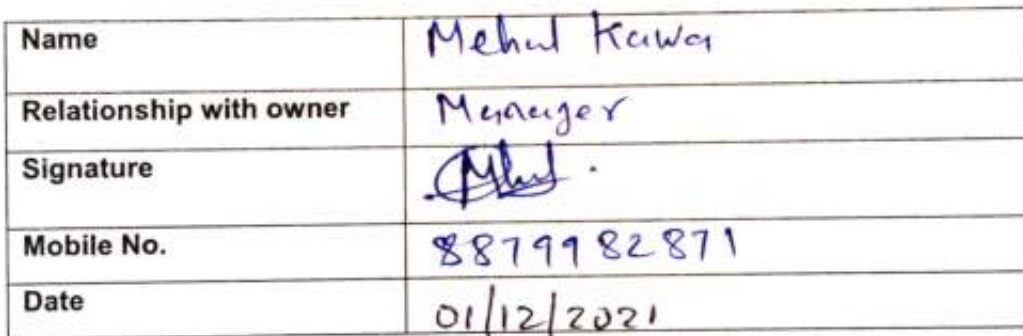 Name Mehul Kawa
Relationship with owner Manager
Signature Mhul.
Mobile No. 8879982871
Date 01/12/2021